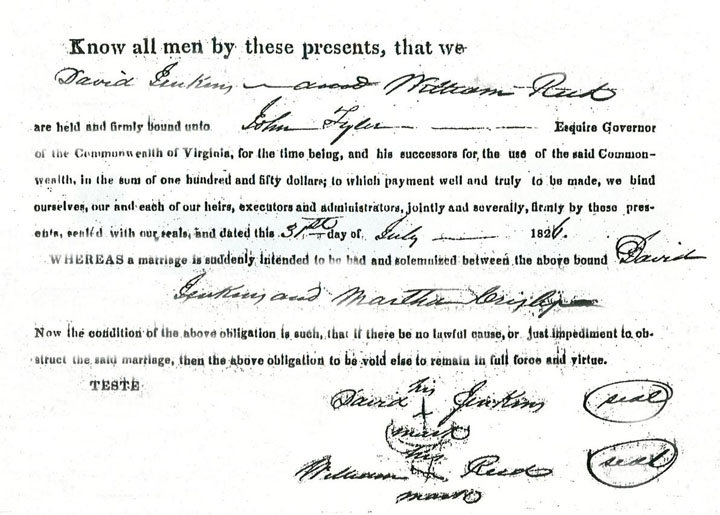 Know all men by these presents, that we
David Jenkins and William Reed
are held and firmly bound unto John Tyler Esquire Governor
of the Commonwealth of Virginia, for the time being, and his successors for the use of the said Common-
wealth, in the sum of one hundred and fifty dollars; to which payment well and truly to be made, we bind
ourselves, our and each of our heirs, executors and administrators, jointly and severally, firmly by these pres-
ents, sealed with our seals, and dated this 31st day of July 1826.
WHEREAS a marriage is suddenly intended to be had and solemnized between the above bound David
Jenkins and Martha
Now the condition of the above obligation is such, that if there be no lawful cause, or just impediment to ob-
struct the said marriage, then the above obligation to be void else to remain in full force and virtue.
TESTE
his
David Jenkins seal
mark
his
William Reed seal
mark